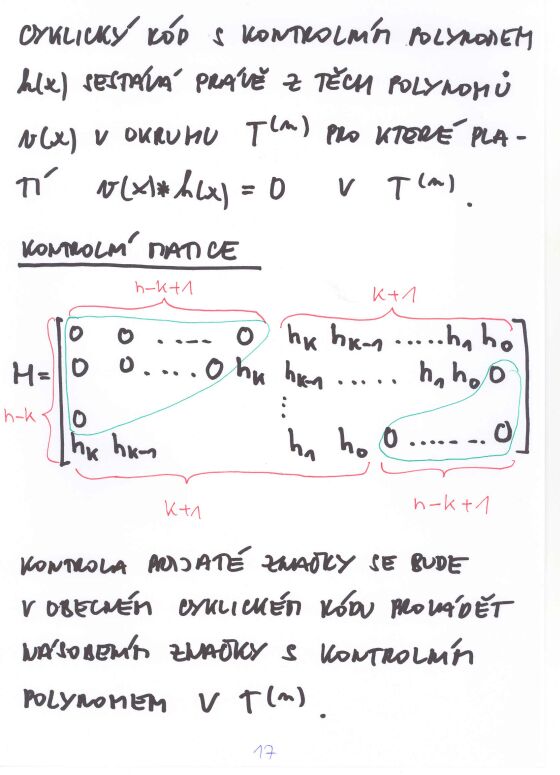 CYKLICKÝ KÓD S KONTROLNÍM POLYNOMEM
h(x) SESTÁVÁ PRÁVĚ Z TĚCH POLYNOMŮ
v(x) V OKRUHU T^(n) PRO KTERÉ PLA-
TÍ v(x)*h(x) = 0 V T^(n).
KONTROLNÍ MATICE
n-k+1 k+1
0 0 ..... 0 hk hk-1 ..... h1 h0
H= 0 0 .... 0 hk hk-1 ..... h1 h0 0
n-k 0 ⋮
hk hk-1 h1 h0 0 ....... 0
k+1 n-k+1
KONTROLA PŘIJATÉ ZNAČKY SE BUDE
V OBECNÉM CYKLICKÉM KÓDU PROVÁDĚT
NÁSOBENÍM ZNAČKY S KONTROLNÍM
POLYNOMEM V T^(n).
17